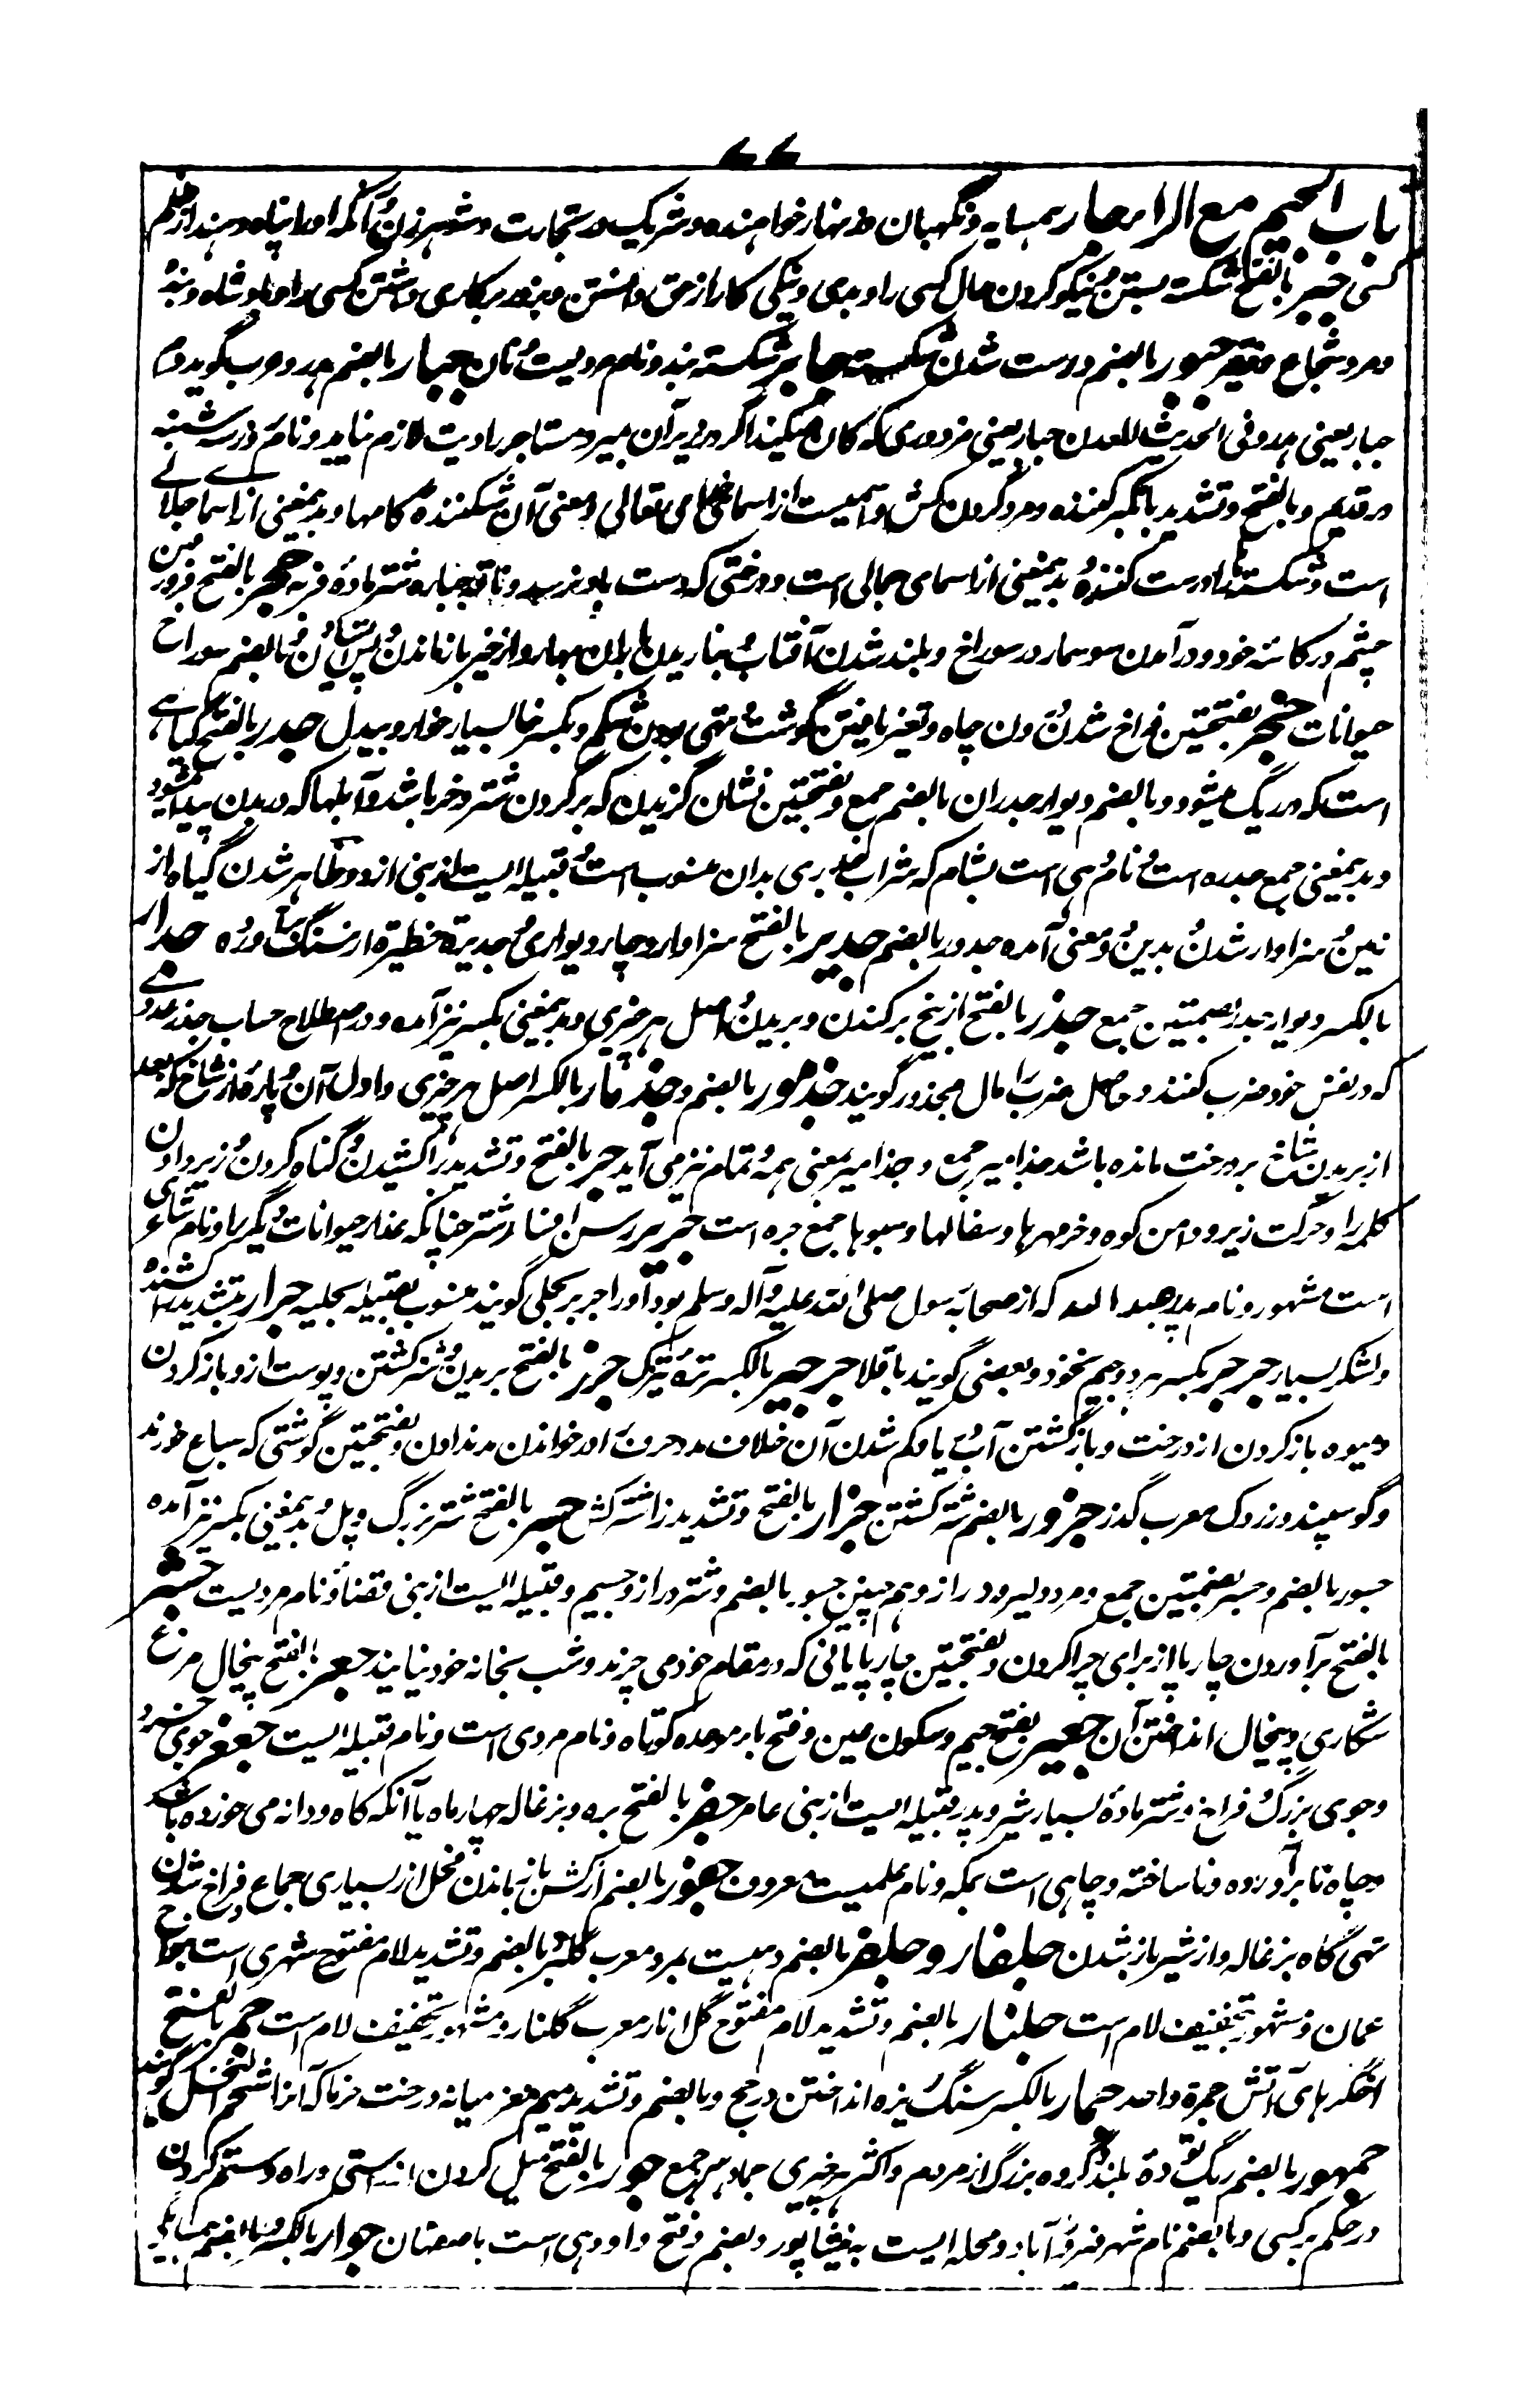 ۷۷
باب الجیم مع الراء جار همسایه و نگهبان و زنهار خواهنده و شریک در تجارت و شوهر زن و آنکه او را پناه دهند از ظلم
کسی جبر بالفتح شکسته بستن و نیکو کردن حال کسی را و بدی و نیکی کار از حق دانستن و بزور بر کاری داشتن کسی را و پادشاه و بنده
و مرد شجاع و فقیر جبور بالضم درست شدن شکسته جابر شکسته بند و نام مردیست و نان جبار بالضم هدر و عرب گوید دم
جبار یعنی هدر و فی الحدیث المعدن جبار یعنی مزدوری که کان میکند اگر در زیر آن بمیرد مستاجر را دیت لازم نیاید و نام روز سه شنبه
در قدیم و بالفتح و تشدید با تکبر کننده و مرد گردن کش و اسمیست از اسمای خدای تعالی و معنی آن شکننده کامها و بدیمعنی از اسما جلالی
است و شکستها را درست کننده و بدیمعنی از اسمای جمالی است و درختی که دست باو نرسد و ناقه جباره شتر ماده فربه جحر بالفتح فرو رفتن
چشم در کاسه خود و در آمدن سوسمار در سوراخ و بلند شدن آفتاب و نباریدن باران بهار و از خیر باز ماندن و پس ایستادن و بالضم سوراخ
حیوانات جخر بفتحتین فراخ شدن درون چاه و تغیر یافتن گوشت و تهی بودن شکم و بکسر خا بسیار خوار و بیدل جدر بالفتح گیاهی
است که در ریگ میشود و بالضم دیوار جدران بالضم جمع و بفتحتین نشان گزیدن که بر گردن شتر و خر باشد و آبلها که در بدن پیدا شود
و بدیمعنی جمع جدره است و نام دهی است بشام که شراب جدری بدان منسوب است و قبیله ایست از بنی ازد و ظاهر شدن گیاه از
زمین و سزاوار شدن و بدین دو معنی آمده جدور بالضم جدیر بالفتح سزاوار و چار دیواری و جدیرة حظیرة از سنگ بر آورده جدار
بالکسر دیوار جدر بضمتین جمع جذر بالفتح از بیخ بر کندن و بریدن و اصل هر چیزی و بدیمعنی بکسر نیز آمده و در اصطلاح حساب جذر عددی
که در نفس خود ضرب کنند و حاصل ضرب را مال و مجذور گویند جذمور بالضم و جذمار بالکسر اصل هر چیزی و اول آن و پاره از شاخ که بعد
از بریدن شاخ بر درخت مانده باشد جذامیر جمع و جذامیر بمعنی همه و تمام نیز می آید جر بالفتح و تشدید را کشیدن و گناه کردن و زیر دادن
کلمه را و حرکت زیر و دامن کوه و خر مهرها و سفالها و سبوها جمع جره است جریر رسن افسار شتر چنانکه عذار حیوانات دیگر را و نام شاعری
است مشهور و نام پدر عبدالله که از صحابه رسول صلی الله علیه و آله وسلم بود و او را جریر بجلی گویند منسوب بقبیله بجلیه جرار بتشدید را کشنده
و لشکر بسیار جرجر بکسر هر دو جیم نخود و بعضی گویند باقلا جرجیر بالکسر تره تیزک جزر بالفتح بریدن و شتر کشتن و پوست ازو باز کردن
و میوه باز کردن از درخت و باز گشتن آب دریا و کم شدن آن خلاف مد و حرف را در خواندن مد ندادن و بفتحتین گوشتی که سباع خورند
و گوسپند و زردک معرب گذر جزور بالضم شتر کشتن جزار بالفتح و تشدید زا شتر کش جسر بالفتح شتر بزرگ و پل و بدیمعنی بکسر نیز آمده
جسور بالضم و جسر بضمتین جمع و مرد دلیر و دراز و همچنین جسور بالضم و شتر دراز و جسیم و قبیله ایست از بنی قضاعه و نام مردیست جشر
بالفتح بر آوردن چار پا از برای چرا کردن و بفتحتین چار پایانی که در مقام خود می چرند و شب بخانه خود نیایند جعر بالفتح پیخال مرغ
شکاری و پیخال انداختن آن جعبر بفتح جیم و سکون عین و فتح باء موحده کوتاه و نام مردی است و نام قبیله ایست جعفر جوی خرد
و جوی بزرگ و فراخ و شتر ماده بسیار شیر و پدر قبیله ایست از بنی عامر جفر بالفتح بره و بزغاله چهار ماه یا آنکه کاه و دانه می خورده باشد
و چاه نا بر آورده و نا ساخته و چاهی است بمکه و نام علمیست معروف جفور بالضم از گشن باز ماندن فحل از بسیاری جماع و فراخ شدن
تهی گاه بزغاله و از شیر باز شدن جلفار و جلفر بالضم دهیست بمرو معرب گلبر و بالضم و تشدید لام مفتوح شهری است بنواح
عمان و مشهور بتخفیف لام است جلنار بالضم و تشدید لام مفتوح گل انار معرب گلنار و مشهور بتخفیف لام است جمر بالفتح
اخگرهای آتش جمرة واحد جمار بالکسر سنگ ریزه انداختن در حج و بالضم و تشدید میم مغز میانه درخت خرما که آنرا شحم النخل گویند
جمهور بالضم ریگ توده بلند و گروه بزرگ از مردم و اکثر هر چیزی جماهیر جمع جور بالفتح میل کردن از راستی و راه و ستم کردن
در حکم بر کسی و بالضم نام شهر فیروز آباد و محله ایست به نیشاپور و بضم و فتح واو دهی است باصفهان جوار بالکسر و بالضم همسایگی